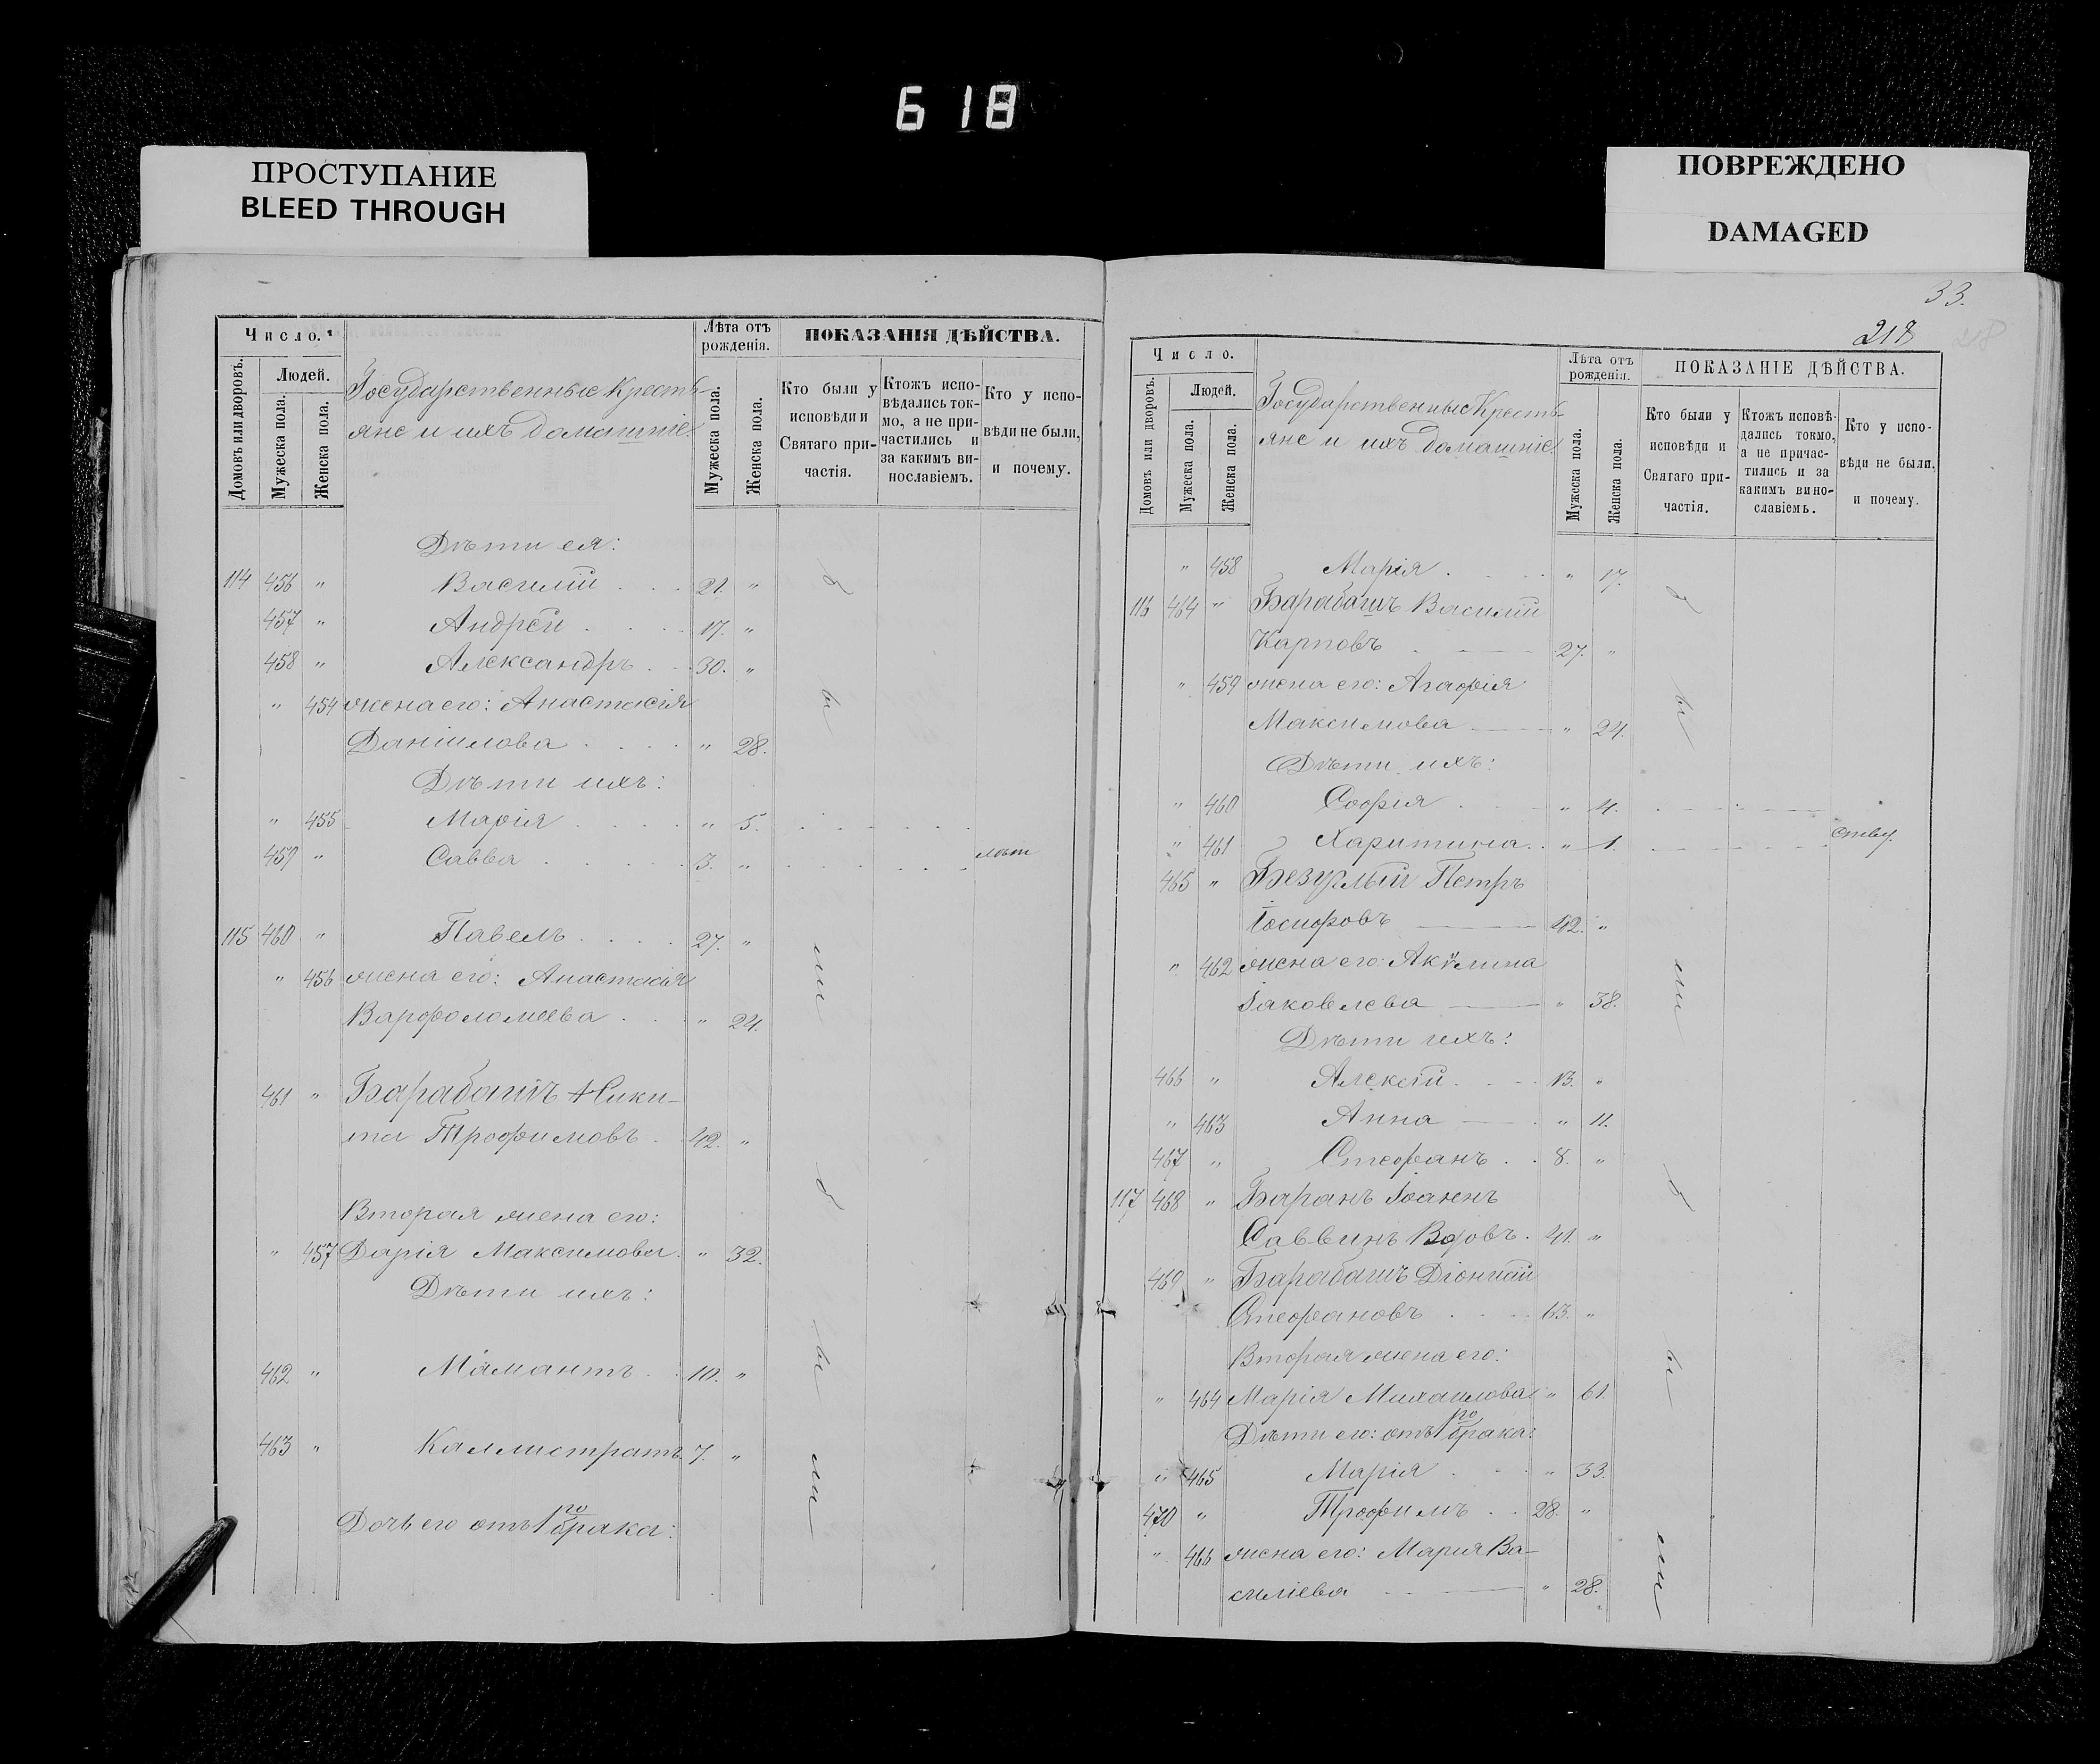 618
ПРОСТУПАНИЕ
BLEED THROUGH
ПОВРЕЖДЕНО
DAMAGED
Число.
Людей.
Домовъ или дворовъ.
Мужеска пола.
Женска пола.
Государственные Кресть-
яне и ихъ домашніе.
Лѣта отъ
рожденія.
Мужеска пола.
Женска пола.
ПОКАЗАНІЯ ДѢЙСТВА.
Кто были у
исповѣди и
Святаго при-
частія.
Ктожъ испо-
вѣдались ток-
мо, а не при-
частились и
за какимъ ви-
нославіемъ.
Кто у испо-
вѣди не были,
и почему.
Дѣти ея:
114 456 " Василій 21. "
457 " Андрей 17. "
458 " Александръ 30. "
" 454 жена его: Анастасія
Даніилова " 28.
Дѣти ихъ:
" 455 Марія " 5.
459 " Савва 3. "
115 460 " Павелъ 27. "
" 456 жена его: Анастасія
Варфоломеева " 24.
461 " Барабашъ Ники-
та Трофимовъ 42. "
Вторая жена его:
" 457 Дарія Максимова " 32.
Дѣти ихъ:
462 " Мамантъ 10. "
463 " Каллистратъ 7. "
Дочь его отъ 1го брака:
бы
ли
бы
ли
33.
218
218
Число.
Людей.
Домовъ или дворовъ.
Мужеска пола.
Женска пола.
Государственные Кресть-
яне и ихъ домашніе.
Лѣта отъ
рожденія.
Мужеска пола.
Женска пола.
ПОКАЗАНІЕ ДѢЙСТВА.
Кто были у
исповѣди и
Святаго при-
частія.
Ктожъ исповѣ-
дались токмо,
а не причас-
тились и за
какимъ вино-
славіемъ.
Кто у испо-
вѣди не были,
и почему.
" 458 Марія " 17.
116 464 " Барабашъ Василій
Карповъ 27. "
" 459 жена его: Агафія
Максимова " 24.
Дѣти ихъ:
" 460 Софія " 4.
" 461 Харитина " 1. ству.
465 " Безуглый Петръ
Іосифовъ 42. "
" 462 жена его: Акѵлина
Іаковлева " 38.
Дѣти ихъ:
466 " Алексій 13. "
" 463 Анна " 11.
467 " Стефанъ 8. "
117 468 " Баранъ Іоаннъ
Саввинъ Вдовъ. 41. "
469 " Барабашъ Діонисій
Стефановъ 63. "
Вторая жена его:
" 464 Марія Михаилова " 61.
Дѣти его: отъ 1го брака:
" 465 Марія " 33.
470 " Трофимъ 28. "
" 466 жена его: Марія Ва-
силіева " 28.
бы
ли
бы
ли